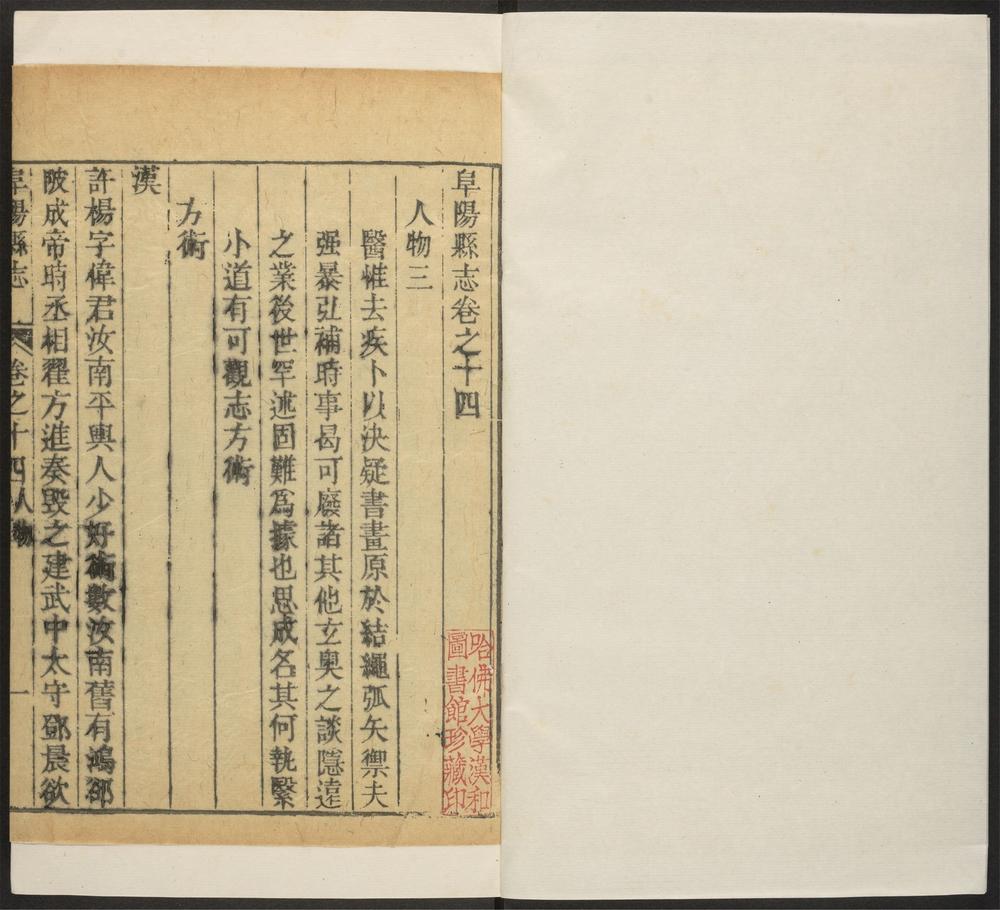 阜陽縣志卷之十四
人物三
醫惟去疾卜以決疑書畫原於結繩弧矢禦夫
强暴弘補時事曷可廢諸其他玄奥之談隱遠
之業後世罕述固難爲據也思成名其何執繄
小道有可觀志方術
方術
漢
許楊字偉君汝南平輿人少好術數汝南舊有鴻郤
陂成帝時丞相翟方進奏毀之建武中太守鄧晨欲
阜陽縣志
卷之十四人物
一
哈佛大學漢和
圖書館珍藏印